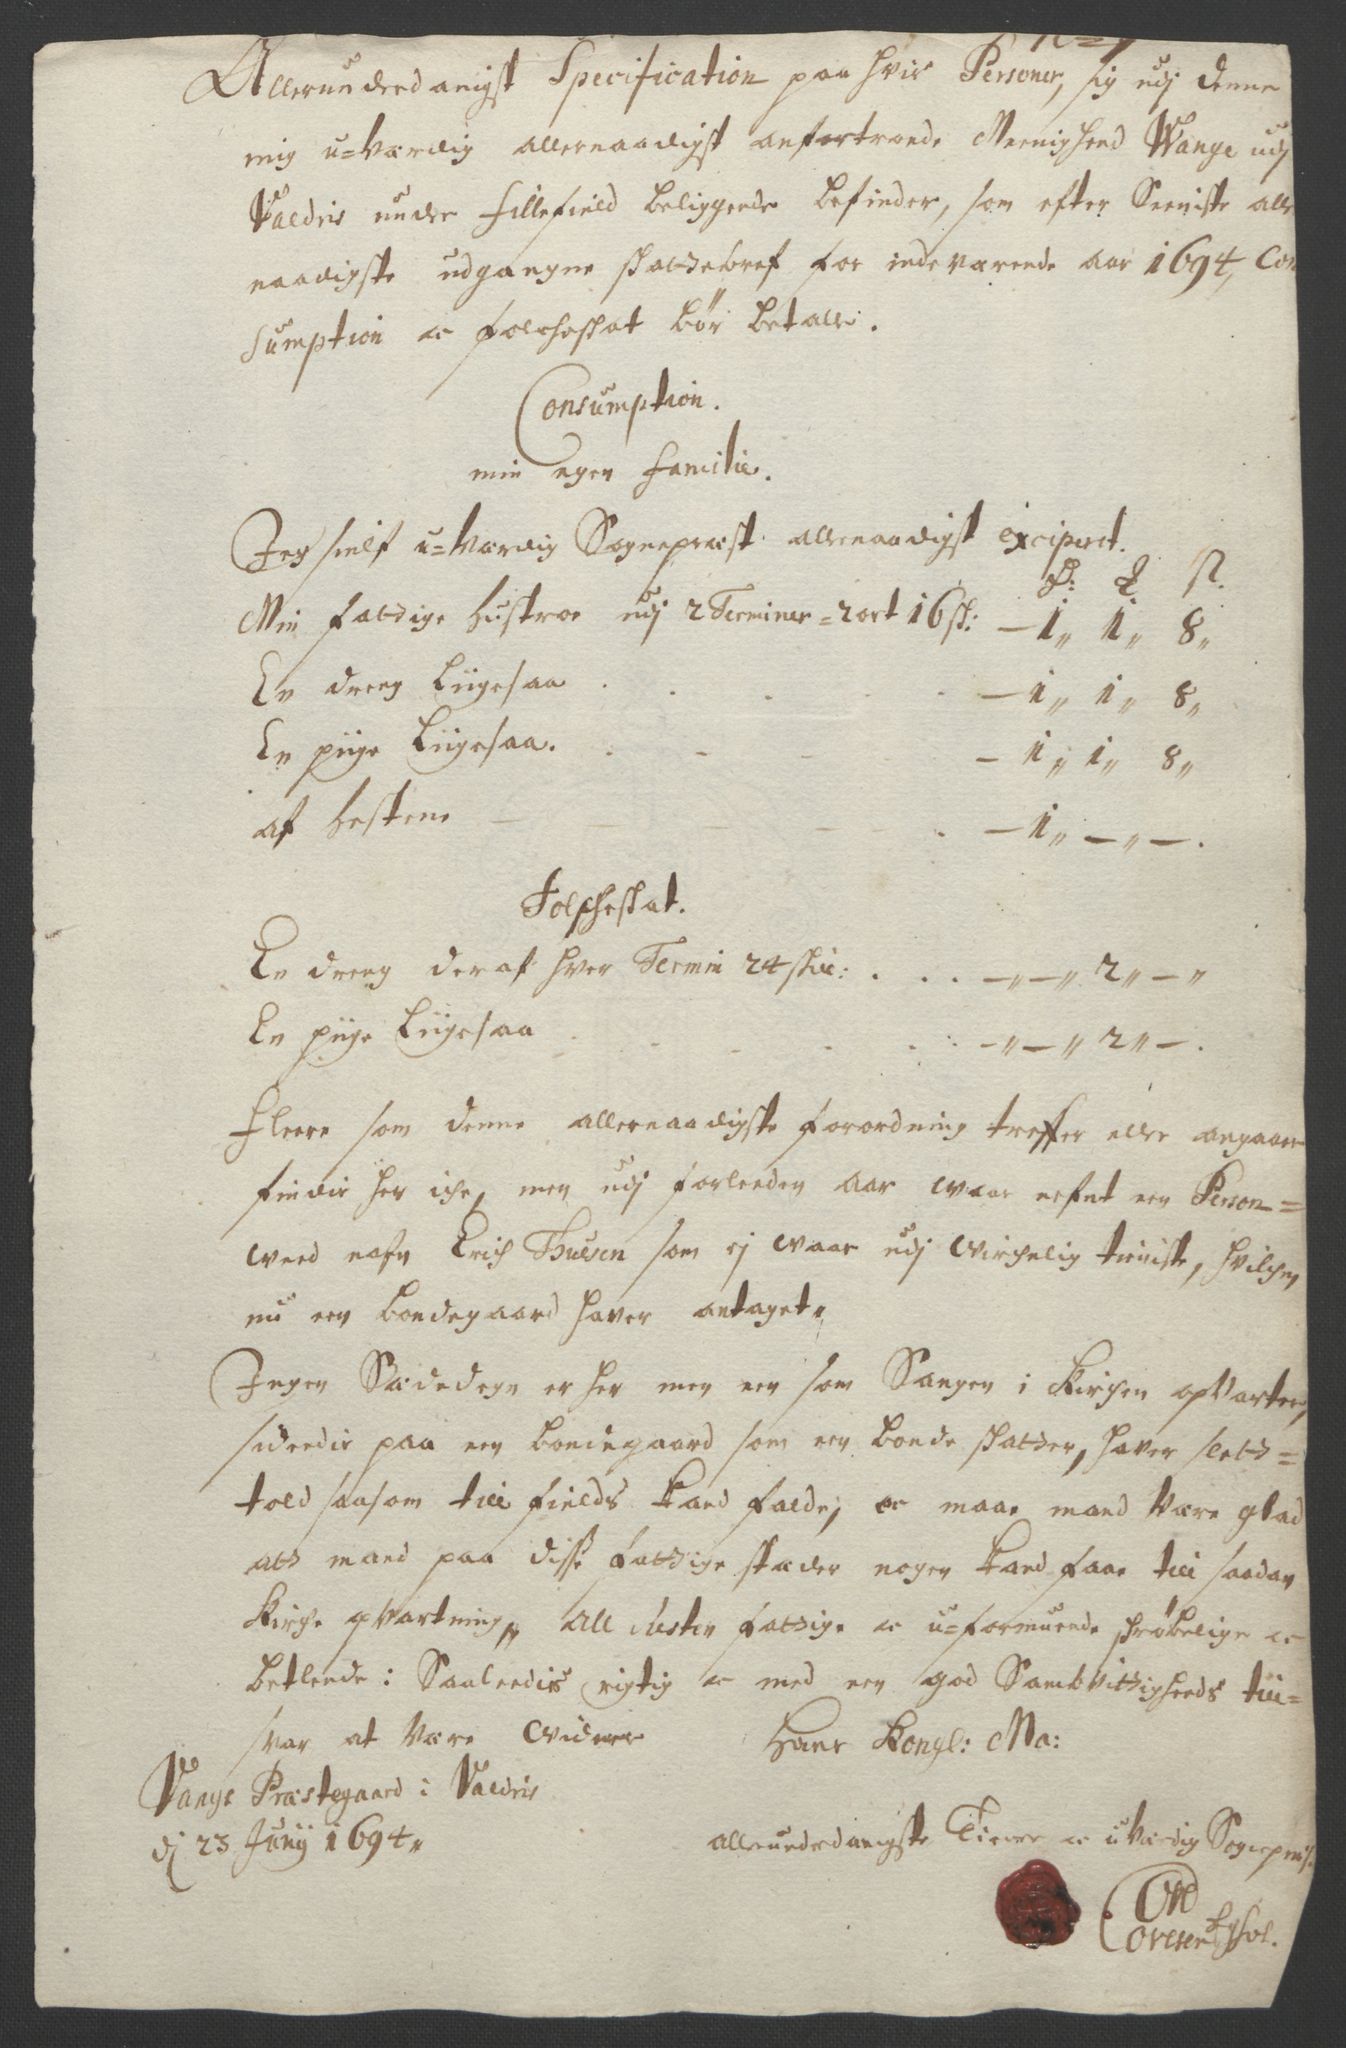 Allerunderdanigst Specification paa hvis Personer, sig udj denne
mig u=værdig allernaadigst anfortroede Meenighed Wange udj
Valdris under Fillefield beliggende befinder, som efter Seeniste aller
naadigste udgangne skattebref for indeværende aar 1694, Con
sumption oc folcheskat bør betalle.
Consumption.
min egen familie.
Jeg sielf u=værdig Sognepræst allernaadigst exciperet.
Min fattige hustroe udj 2 Terminer = 2 ort 16 s: — 1 „ 1 „ 8 „
En dreng liigesaa . . . . . — 1 „ 1 „ 8 „
En piige liigesaa. . . — 1 „ 1 „ 8 „
af hestene — — — — 1 „ — „ — .
Folcheskat.
En dreng deraf hver Termin 24 skil: . . . — „ — „ 2 „ — „
En piige liigesaa . . . . — „ — „ 2 „ — .
Fleere som denne allernaadigste forordning treffer eller angaar
findis her iche, men udj forleeden aar waar nefnt een Person=
weed nafn Erich Thuesen som ej waar udj wirchelig tieniste, hvilchen
nu een bondegaard haver antaget „
Ingen Sædedegn er her men een som Sangen i Kirchen opvarter,
sidendis paa een bondegaard som een bonde skatter, haver slet
told saasom till fields kand falde, oc maa mand være glad
att mand paa disse fattige stæder nogen kand faae till saadan
Kirche opvartning, All resten fattige oc u=formuende skrøbelige oc
betlende: Saaleedis rigtig oc med een god Samvittigheeds till=
svar at være widner Hans Kongl: Ma:
Vange Præstegaard i Valdris
dj 23 Junij 1694 „
allerunderdanigste Tiener oc uværdig Sognepræst.